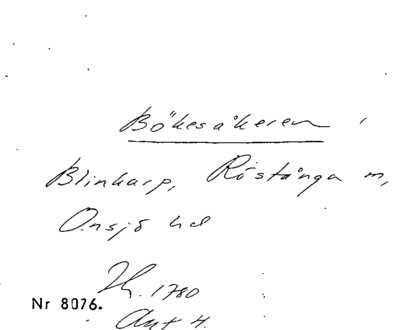 Bökesåkeren
Blinkarp, Röstånga m,
Onsjö hd
Th. 1780
Nr 8076.
Akt 4.